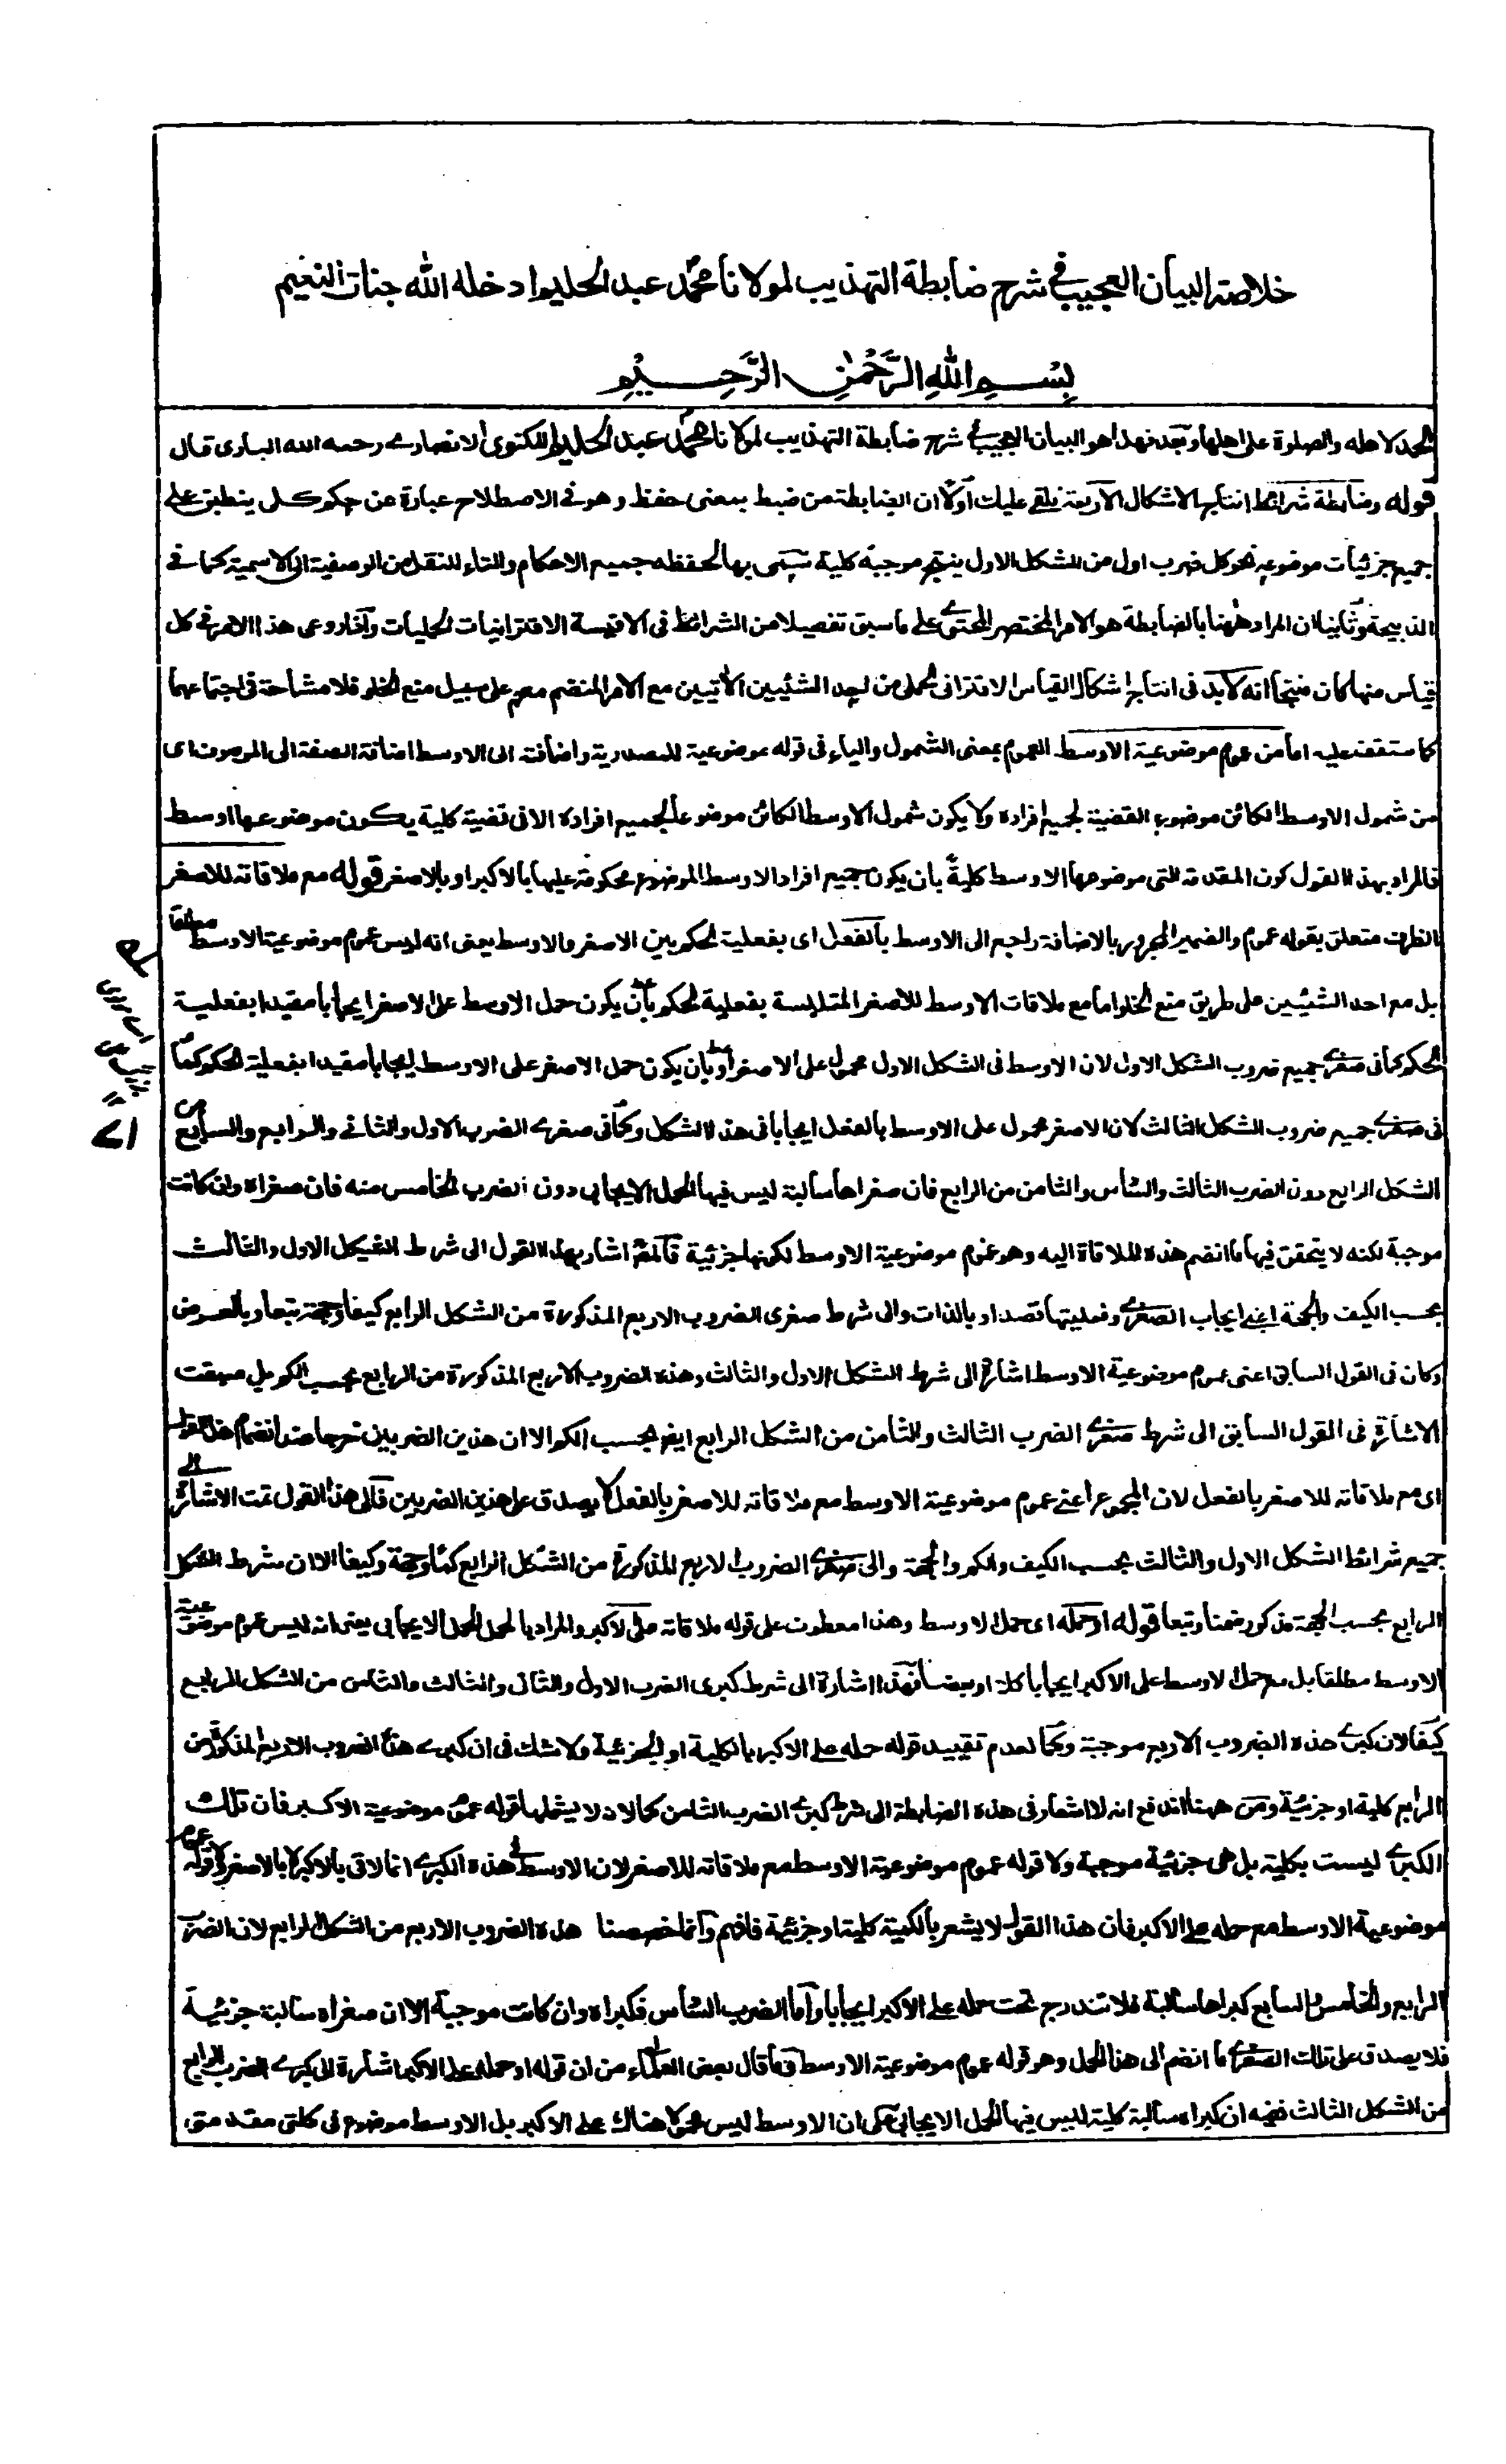 خلاصة البيان العجيب في شرح ضابطة التهذيب لمولانا محمد عبد الحليم ادخله الله جنات النعيم
بِسْمِ اللهِ الرَّحْمٰنِ الرَّحِيْمِ
الحمد لاهله والصلوة على اهلها وبعد فهذا هو البيان العجيب في شرح ضابطة التهذيب لمولانا محمد عبد الحليم اللكنوي الانصاري رحمه الله الباري قال
قوله وضابطة شرائط انتاج الاشكال الاربعة يلقى عليك اولا ان الضابطة من ضبط بمعنى حفظ وهو في الاصطلاح عبارة عن حكم كلي ينطبق على
جميع جزئيات موضوعه نحو كل ضرب اول من الشكل الاول ينتج موجبة كلية تسمى بها لحفظه جميع الاحكام والتاء للنقل من الوصفية الى الاسمية كما في
الذبيحة وثانيا ان المراد ههنا بالضابطة هو الامر المختصر المحتوي على ما سبق تفصيلا من الشرائط في الاقيسة الاقترانيات الحمليات وافاد وعى هذا الامر في كل
قياس منها كان منتجا انه لابد في انتاج اشكال القياس الاقتراني الحملي من احد الشيئين الاتيين مع الامر المنضم معه على سبيل منع الخلو فلا مشاحة في اجتماعهما
كما ستقف عليه اما من عموم موضوعية الاوسط العموم بمعنى الشمول والياء في قوله موضوعية للمصدرية واضافته الى الاوسط اضافة الصفة الى الموصوف اى
من شمول الاوسط الكائن موضوع القضية لجميع افراده ولا يكون شمول الاوسط الكائن موضوعا لجميع افراده الا في قضية كلية يكون موضوعها اوسط
فالمراد بهذا القول كون المقدمة التي موضوعها الاوسط كلية بان يكون جميع افراد الاوسط الموضوع محكومة عليها بالاكبر او بالاصغر قوله مع ملاقاته للاصغر
الظرف متعلق بقوله عموم والضمير المجرور بالاضافة راجع الى الاوسط بالفعل اى بفعلية الحكم بين الاصغر والاوسط يعنى انه ليس عموم موضوعية الاوسط مطلقا
بل مع احد الشيئين على طريق منع الخلو اما مع ملاقات الاوسط للاصغر المتلبسة بفعلية الحكم بان يكون حمل الاوسط على الاصغر ايجابا مقيدا بفعلية
الحكم كما في صغرى جميع ضروب الشكل الاول لان الاوسط في الشكل الاول محمول على الاصغر او بان يكون حمل الاصغر على الاوسط ايجابا مقيدا بفعلية الحكم كما
في صغرى جميع ضروب الشكل الثالث لان الاصغر محمول على الاوسط بالفعل ايجابا في هذا الشكل وكما في صغرى الضرب الاول والثاني والرابع والسابع من
الشكل الرابع دون الضرب الثالث والسادس والثامن من الرابع فان صغراها سالبة ليس فيها الحمل الايجابي دون الضرب الخامس منه فان صغراه وان كانت
موجبة لكنه لا يتحقق فيها ما انضم هذه الملاقاة اليه وهو عموم موضوعية الاوسط لكونها جزئية فالمص اشار بهذا القول الى شرط الشكل الاول والثالث
بحسب الكيف والجهة اعنى ايجاب الصغرى وفعليتها قصدا وبالذات والى شرط صغرى الضروب الاربع المذكورة من الشكل الرابع كيفا وجهة تبعا وبالعرض
وكان في القول السابق اعنى عموم موضوعية الاوسط اشارة الى شرط الشكل الاول والثالث وهذه الضروب الاربع المذكورة من الرابع بحسب الكم بل سبقت
الاشارة في القول السابق الى شرط صغرى الضرب الثالث والثامن من الشكل الرابع ايضا بحسب الكم الا ان هذين الضربين خرجا عند انضمام هذا القول
اى مع ملاقاته للاصغر بالفعل لان المجموع اعنى عموم موضوعية الاوسط مع ملاقاته للاصغر بالفعل لا يصدق على هذين الضربين فالى هذا القول تمت الاشارة الى
جميع شرائط الشكل الاول والثالث بحسب الكيف والكم والجهة والى صغرى الضروب الاربع المذكورة من الشكل الرابع كما وجهة وكيفا الا ان شرط الشكل
الرابع بحسب الجهة مذكور ضمنا وتبعا قوله او حمله اى حمل الاوسط وهذا معطوف على قوله ملاقاته على الاكبر والمراد بالحمل الحمل الايجابي يعنى انه ليس عموم موضوعية
الاوسط مطلقا بل مع حمل الاوسط على الاكبر ايجابا كلا او بعضا فهذا اشارة الى شرط كبرى الضرب الاول والثاني والثالث والثامن من الشكل الرابع
كيفا لان كبرى هذه الضروب الاربع موجبة وكما لعدم تقييد قوله حمله على الاكبر بالكلية او الجزئية ولا شك في ان كبرى هذه الضروب الاربع المذكورة من
الرابع كلية او جزئية ومن ههنا اندفع انه لا اشعار في هذه الضابطة الى شرط كبرى الضرب الثامن كما لانه لا يشملها قوله عموم موضوعية الاكبر فان تلك
الكبرى ليست بكلية بل هى جزئية موجبة ولا قوله عموم موضوعية الاوسط مع ملاقاته للاصغر لان الاوسط في هذه الكبرى انما لاقى بالاكبر لا بالاصغر ولا قوله عموم
موضوعية الاوسط مع حمله على الاكبر فان هذا القول لا يشعر بالكمية كلية او جزئية فافهم وانما خصصنا هذه الضروب الاربع من الشكل الرابع لان الضرب
الرابع والخامس والسابع كبراها سالبة فلا تندرج تحت حمله على الاكبر ايجابا واما الضرب السادس فكبراه وان كانت موجبة الا ان صغراه سالبة جزئية
فلا يصدق على تلك الصغرى ما انضم الى هذا الحمل وهو قوله عموم موضوعية الاوسط فما قال بعض العلماء من ان قوله او حمله على الاكبر اشارة الى كبرى الضرب الرابع
من الشكل الثالث ففيه ان كبراه سالبة كلية ليس فيها الحمل الايجابي على ان الاوسط ليس محمولا هناك على الاكبر بل الاوسط موضوع في كلتى مقدمتيه